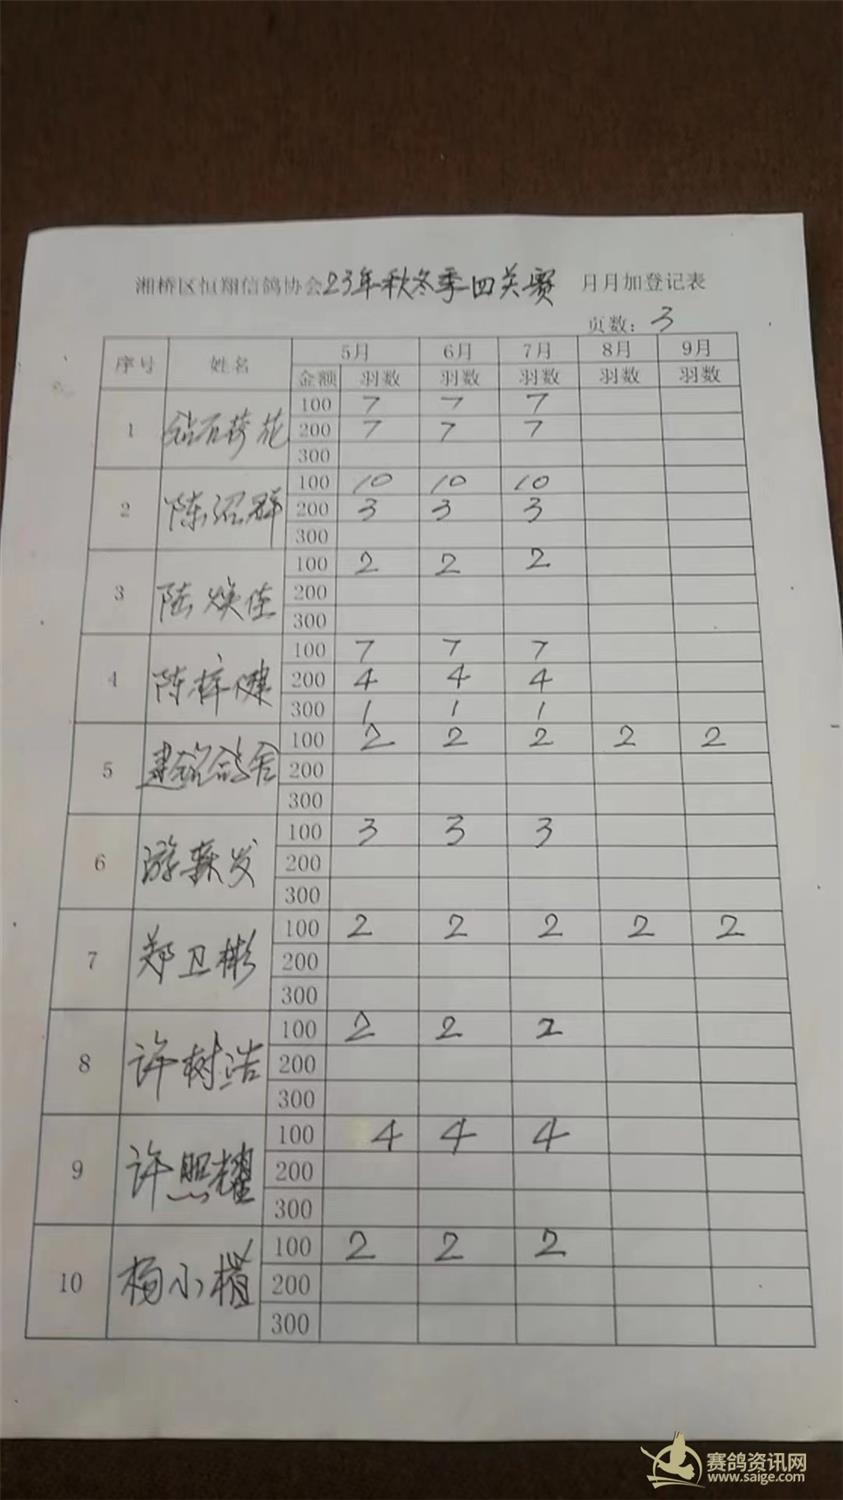 湘桥区恒翔信鸽协会23年秋冬季四关赛 月月加登记表
页数: 3
序号 姓名 5月 6月 7月 8月 9月
金额 羽数 羽数 羽数 羽数 羽数
1 钻石荷花 100 7 7 7
200 7 7 7
300
2 陈沼群 100 10 10 10
200 3 3 3
300
3 陆焕佳 100 2 2 2
200
300
4 陈梓健 100 7 7 7
200 4 4 4
300 1 1 1
5 建铭鸽舍 100 2 2 2 2 2
200
300
6 游森发 100 3 3 3
200
300
7 郑卫彬 100 2 2 2 2 2
200
300
8 许树浩 100 2 2 2
200
300
9 许照耀 100 4 4 4
200
300
10 杨小 100 2 2 2
200
300
赛鸽资讯网
www.saige.com